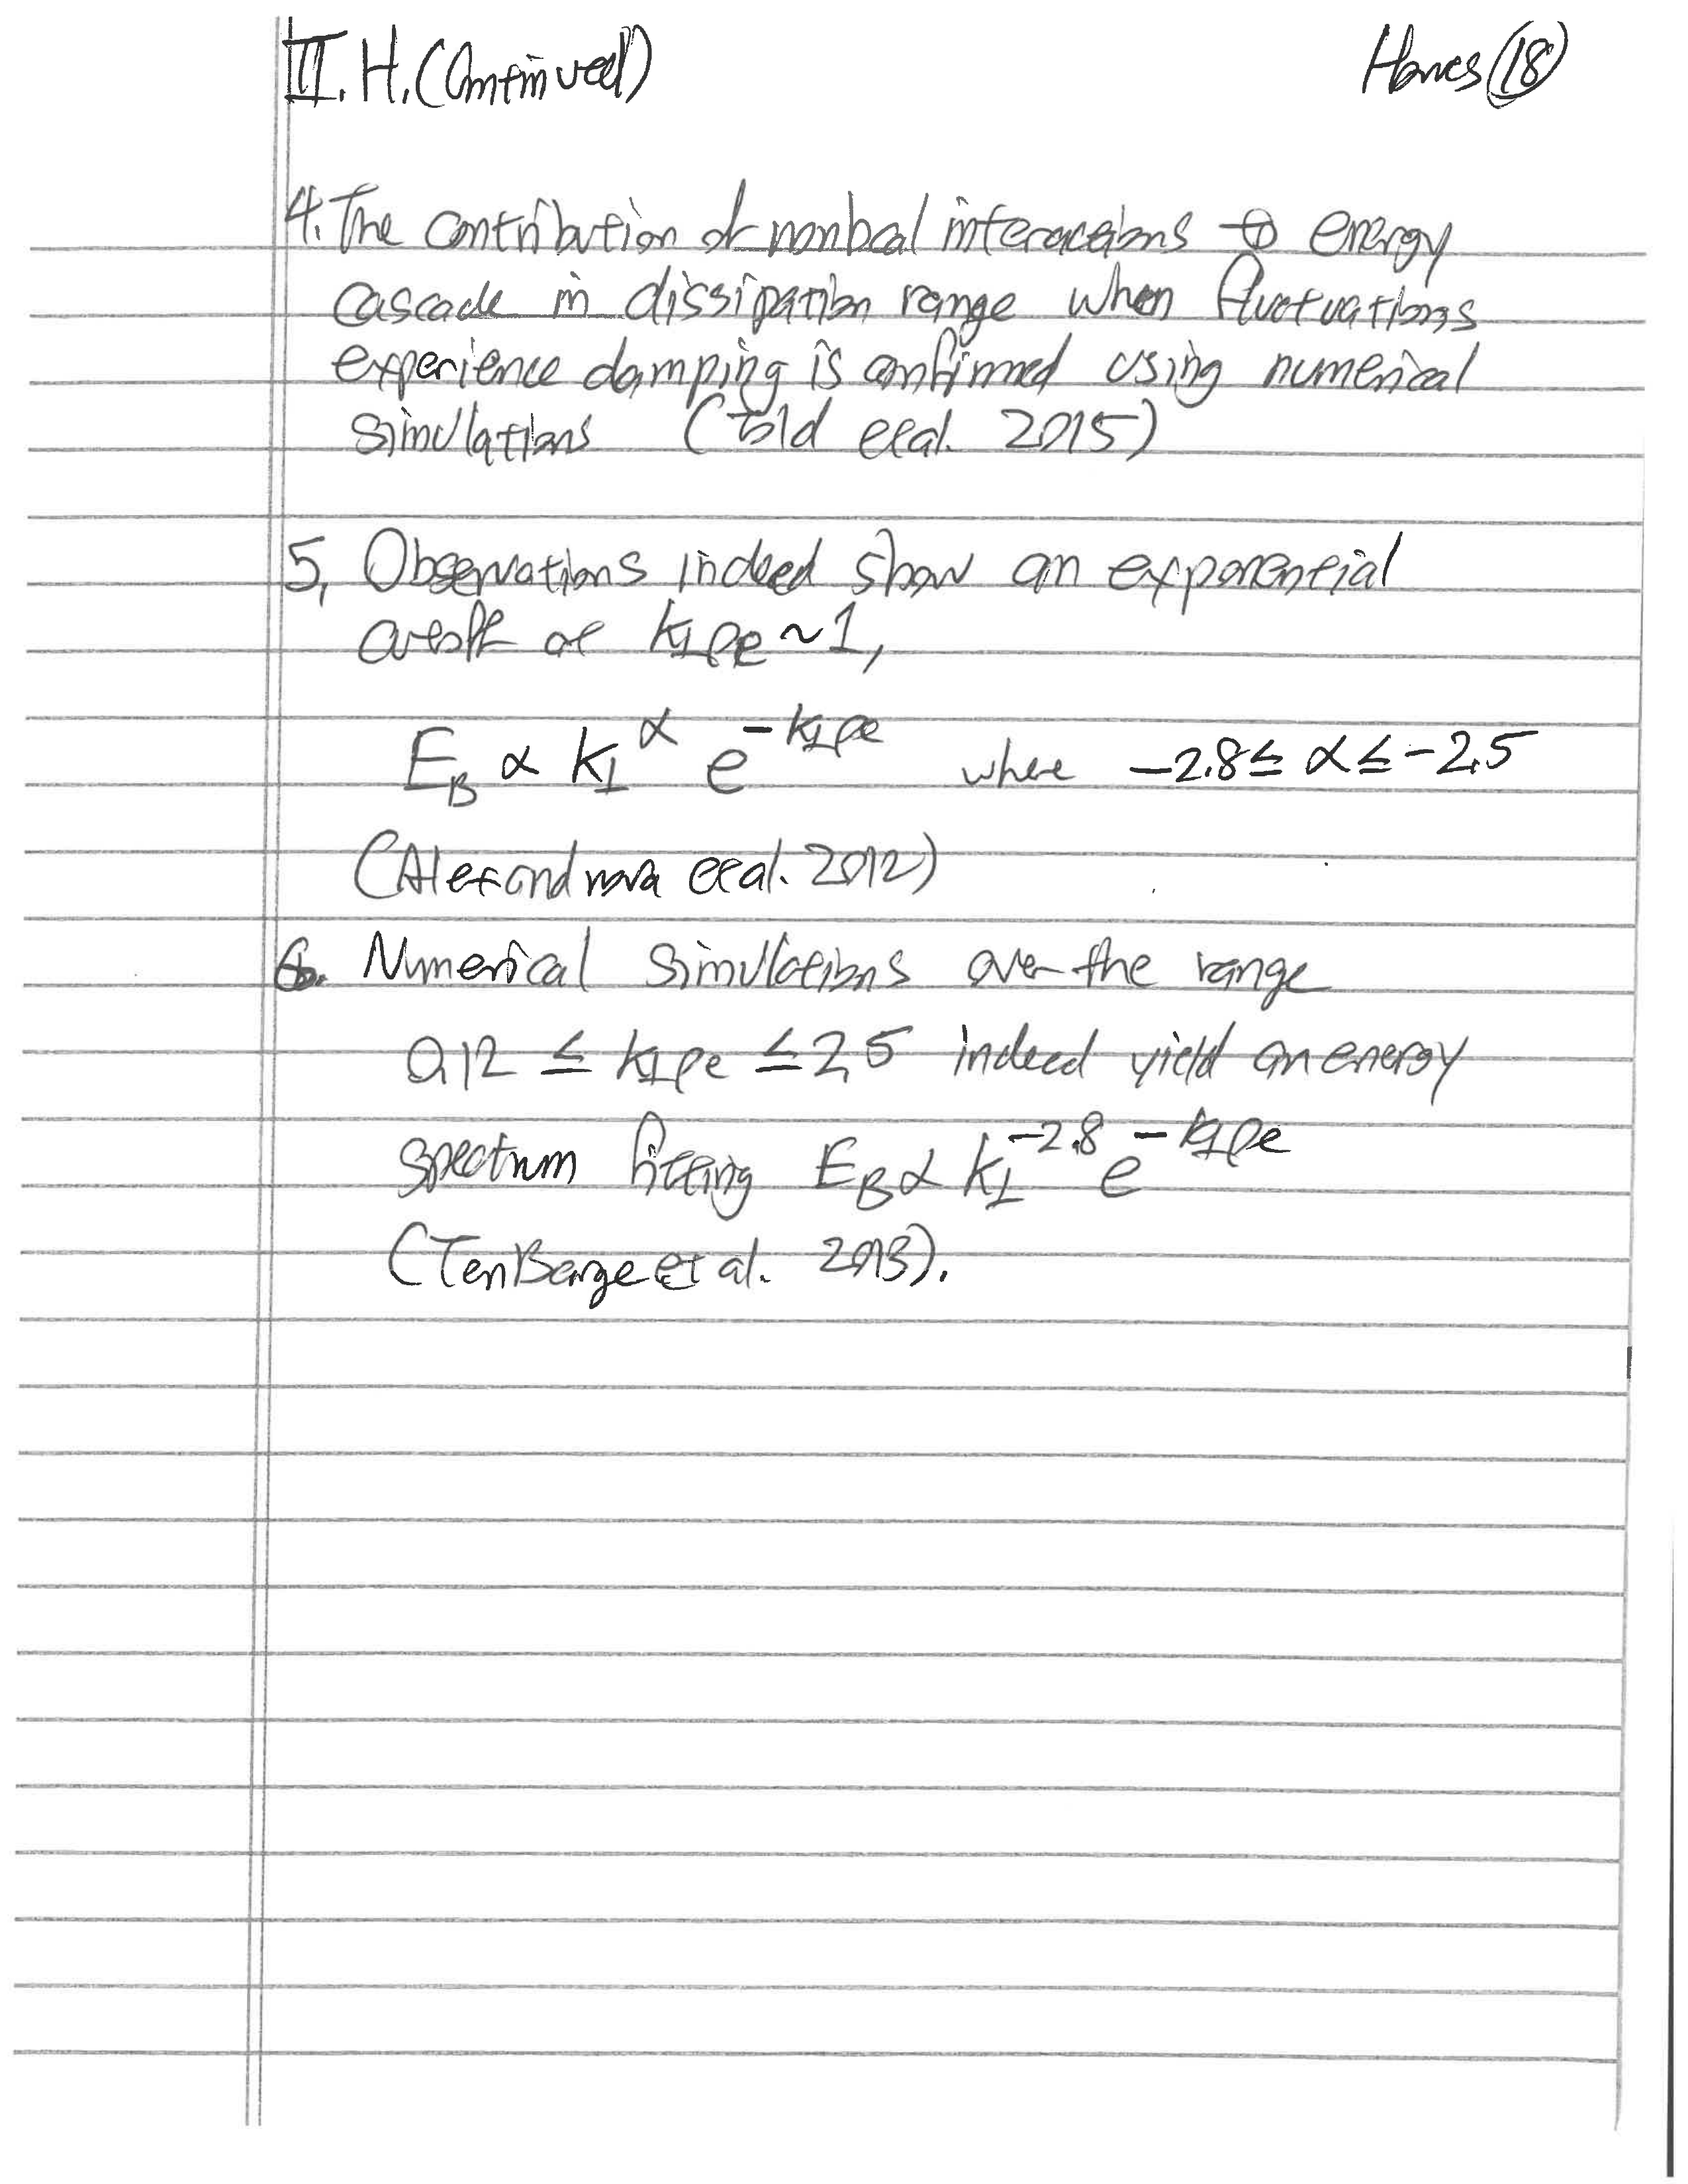 III. H. (Continued)
Howes (18)
4. The contribution of nonlocal interactions to energy
cascade in dissipation range when fluctuations
experience damping is confirmed using numerical
simulations (Told et al. 2015)
5. Observations indeed show an exponential
cutoff at k⊥ρe ~ 1,
E_B ∝ k⊥^α e^{-k⊥ρe} where -2.8 ≤ α ≤ -2.5
(Alexandrova et al. 2012)
6. Numerical simulations over the range
0.12 ≤ k⊥ρe ≤ 2.5 indeed yield an energy
spectrum fitting E_B ∝ k⊥^{-2.8} e^{-k⊥ρe}
(TenBarge et al. 2013).